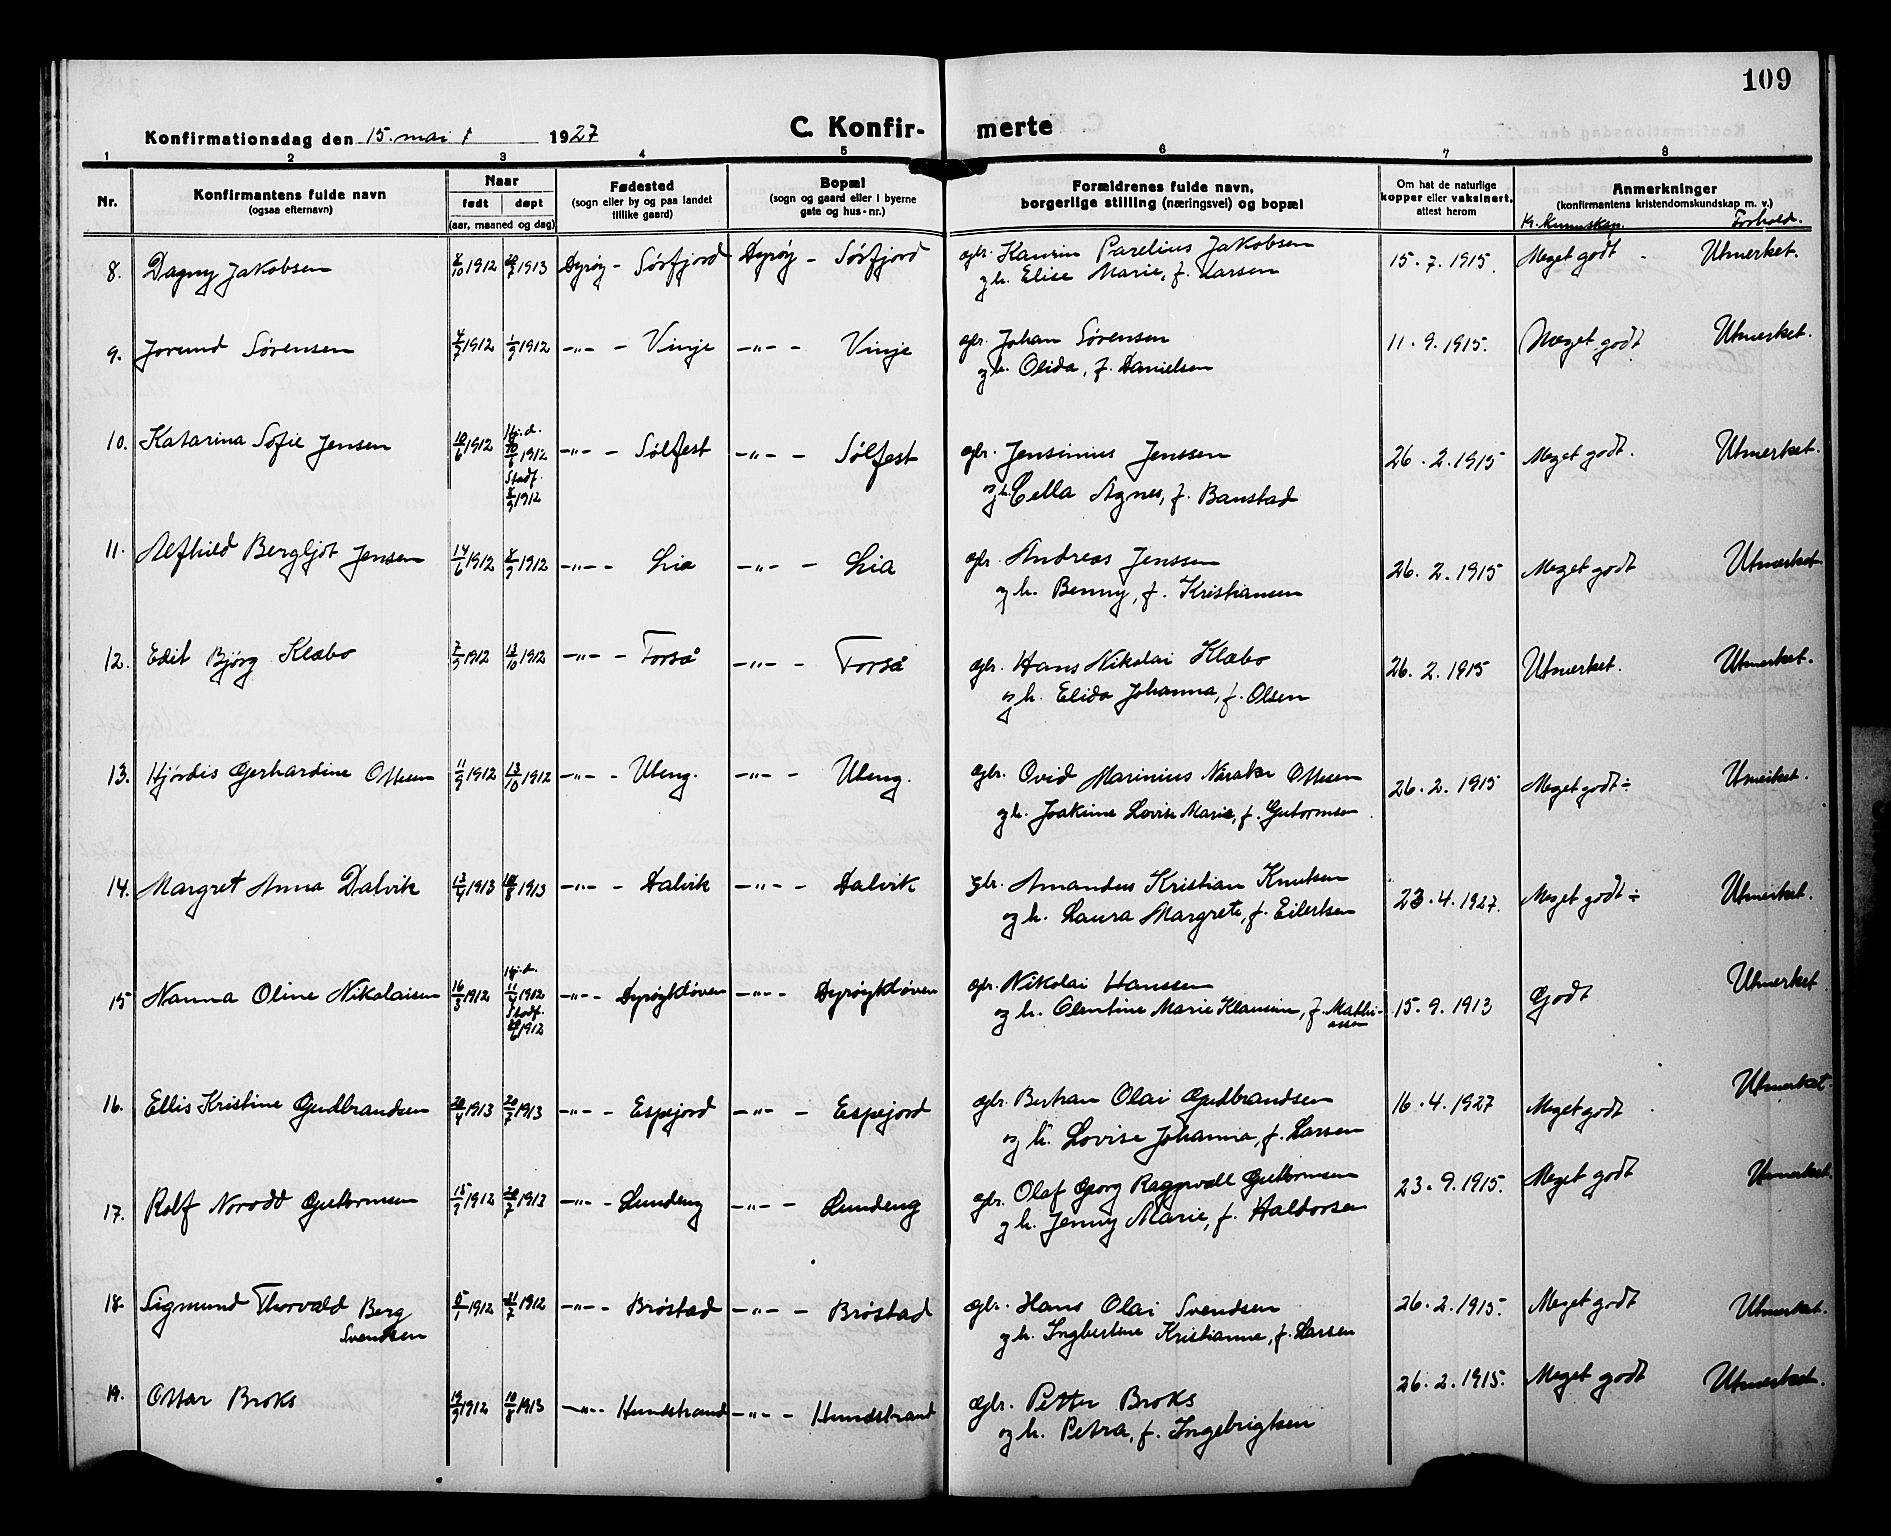 109
Konfirmationsdag den 15. mai 1927
C. Konfir- merte
1 2 3 4 5 6 7 8
Nr.
Konfirmantens fulde navn
(ogsaa efternavn)
Naar
født døpt
(aar, maaned og dag)
Fødested
(sogn eller by og paa landet
tillike gaard)
Bopæl
(sogn og gaard eller i byerne
gate og hus-nr.)
Forældrenes fulde navn,
borgerlige stilling (næringsvei) og bopæl
Om hat de naturlige
kopper eller vaksinert,
attest herom
Anmerkninger
(konfirmantens kristendomskundskap m. v.)
Kr. kunnskap. Forhold.
8. Dagny Jakobsen 1912 1913 Dyrøy - Sørfjord Dyrøy - Sørfjord gbr. Parelius Jakobsen 15.7.1915. Meget godt - Utmerket.
og h. Elise Marie, f. Larsen
9. Jorund Sørensen 4/7 1912 1/9 1912 -"- - Vinje -"- - Vinje gbr. Johan Sørensen 11.9.1915. Meget godt Utmerket.
og h. Olida, f. Danielsen
10. Katarina Sofie Jensen 10/6 1912 Hj.d. 10/6 1912 Stadf. 8/9 1912 -"- - Sølfest -"- - Sølfest gbr. Jensinius Jenssen 26.2.1915 Meget godt. Utmerket.
og h. Cella Agnes, f. Banstad
11. Alfhild Bergljot Jensen 14/6 1912 8/9 1912 -"- - Lia -"- - Lia gbr. Andreas Jenssen 26.2.1915 Meget godt Utmerket
og h. Benny, f. Kristiansen
12. Edit Bjørg Klæbo 7/9 1912 13/10 1912 -"- - Forså -"- - Forså gbr. Hans Nikolai Klæbo 26.2.1915 Utmerket. Utmerket.
og h. Elida Johanna, f. Olsen
13. Hjørdis Gerhardine Ottesen 11/9 1912 13/10 1912 -"- - Uleng. -"- - Uleng. gbr. Ovid Marinius Ottesen 26.2.1915 Meget godt ÷ Utmerket.
og h. Joakime Lovise Marie, f. Gutormsen
14. Margret Anna Dalvik 13/4 1913 10/8 1913 -"- - Dalvik -"- - Dalvik gbr. Amandus Kristian Knutsen 23.4.1927. Meget godt ÷ Utmerket.
og h. Laura Margrete, f. Eilertsen
15 Nanna Oline Nikolaisen 16/3 1912 Hj.d. 11/4 1912 Stadf. 1912 -"- - Dyrøykløven -"- - Dyrøykløven gbr. Nikolai Hanssen 15.9.1913 Godt Utmerket
og h. Olentine Marie Klausine, f. Mathi-
assen
16. Ellis Kristine Gudbrandsen 20/4 1913 20/7 1913 -"- - Espejord -"- - Espejord gbr. Bertran Olai Gudbrandsen 16.4.1927 Meget godt Utmerket.
og h. Lovise Johanna, f. Larsen
17. Rolf Norodd Guttormsen 15/9 1912 20/7 1913 -"- - Lundeng -"- - Lundeng gbr. Olaf Georg Ragnvall Guttormsen 23.9.1915. Meget godt Utmerket.
og h. Jenny Marie, f. Haldorsen
18. Sigmund Thorvald Berg 5/1 1912 21/7 1912 -"- - Brøstad -"- - Brøstad gbr. Hans Olai Svendsen 26.2.1915. Meget godt Utmerket.
Svendsen og h. Ingbertine Kristianne, f. Larsen
19. Ottar Broks 19/9 1912 10/8 1913 -"- - Hundstrand -"- - Hundstrand gbr. Petter Broks 26.2.1915. Meget godt Utmerket.
og h. Petra, f. Ingebrigtsen